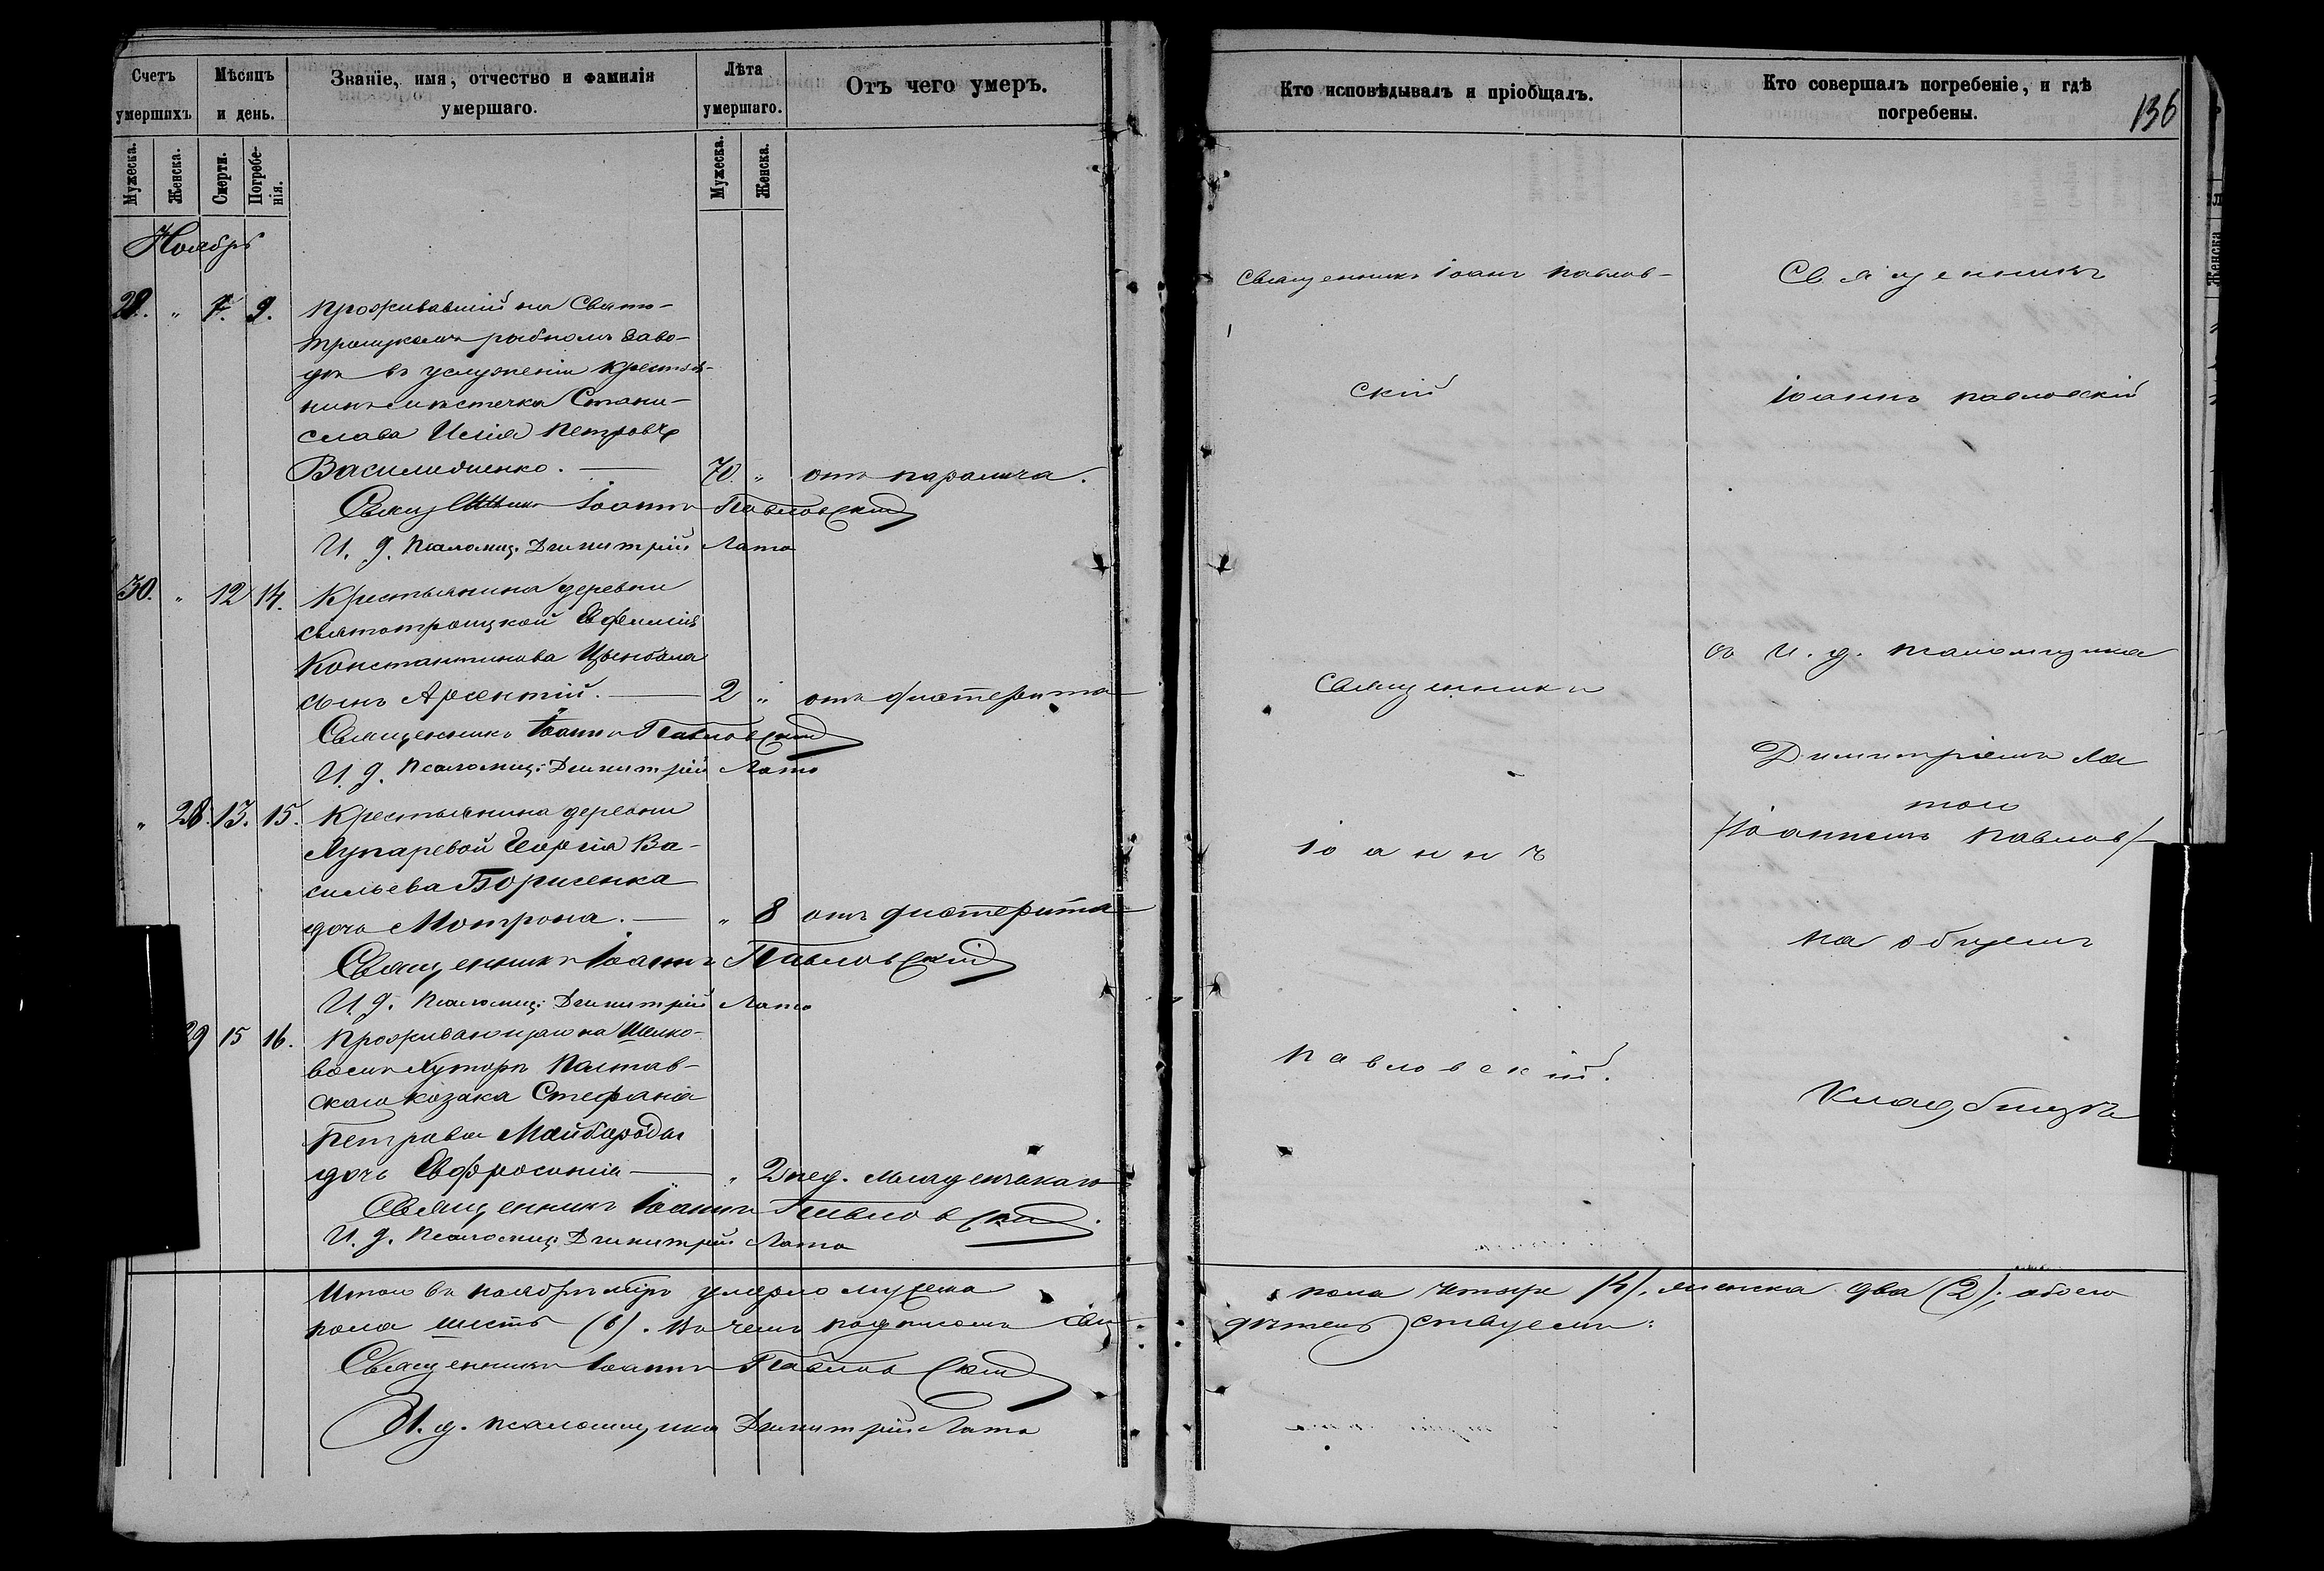 Счетъ умершихъ.
Мѣсяцъ и день.
Званіе, имя, отчество и фамилія умершаго.
Лѣта умершаго.
Отъ чего умеръ.
Мужеска.
Женска.
Смерти.
Погребенія.
Мужеска.
Женска.
Ноябрь
29. " 7. 9. Проживавшій на Свято-
троицкомъ рыбномъ заво-
дѣ въ услуженіи крестья-
нинъ мѣстечка Стани-
слава Илія Петровъ
70. " отъ паралича.
Священникъ Іоаннъ Павловскій
И. д. Псаломщ. Димитрій Лато
30. " 12 14. Крестьянина деревни
святотроицкой Евфимія
Константинова Цымбала
сынъ Арсентій. — 2 " отъ дистерита
Священникъ Іоаннъ Павловскій
И. д. Псаломщ: Димитрій Лато
" 28. 13. 15. Крестьянина деревни
Лупаревой Георгія Ва-
сильева Борисенка
дочь Мотрона. — " 8 отъ дистерита
Священникъ Іоаннъ Павловскій
И. д. Псаломщ: Димитрій Лато
29 15 16. Проживающаго на
хуторѣ Полтав-
скаго козака Стефана
Петрова Майбороды
дочь Евфросинія — " 2 нед. Младенческаго
Священникъ Іоаннъ Павловскій.
И. д. Псаломщ. Димитрій Лато
Итого въ ноябрѣ мѣцѣ умерло мужеска
пола шесть (6). Въ чемъ подписомъ сви-
Священникъ Іоаннъ Павловскій
И. д. псаломщика Димитрій Лато
Кто исповѣдывалъ и пріобщалъ.
Кто совершалъ погребеніе, и гдѣ погребены.
136
Священникъ Іоаннъ Павлов-
скій
Священникъ
Іоаннъ
Павловскій.
Священникъ
Іоаннъ Павловскій
съ и. д. псаломщика
Димитріемъ Ла
тою
/Іоанномъ Павлов/
на общемъ
Кладбищѣ
пола четыре (4), женска два (2); обоего
дѣтельствуемъ: